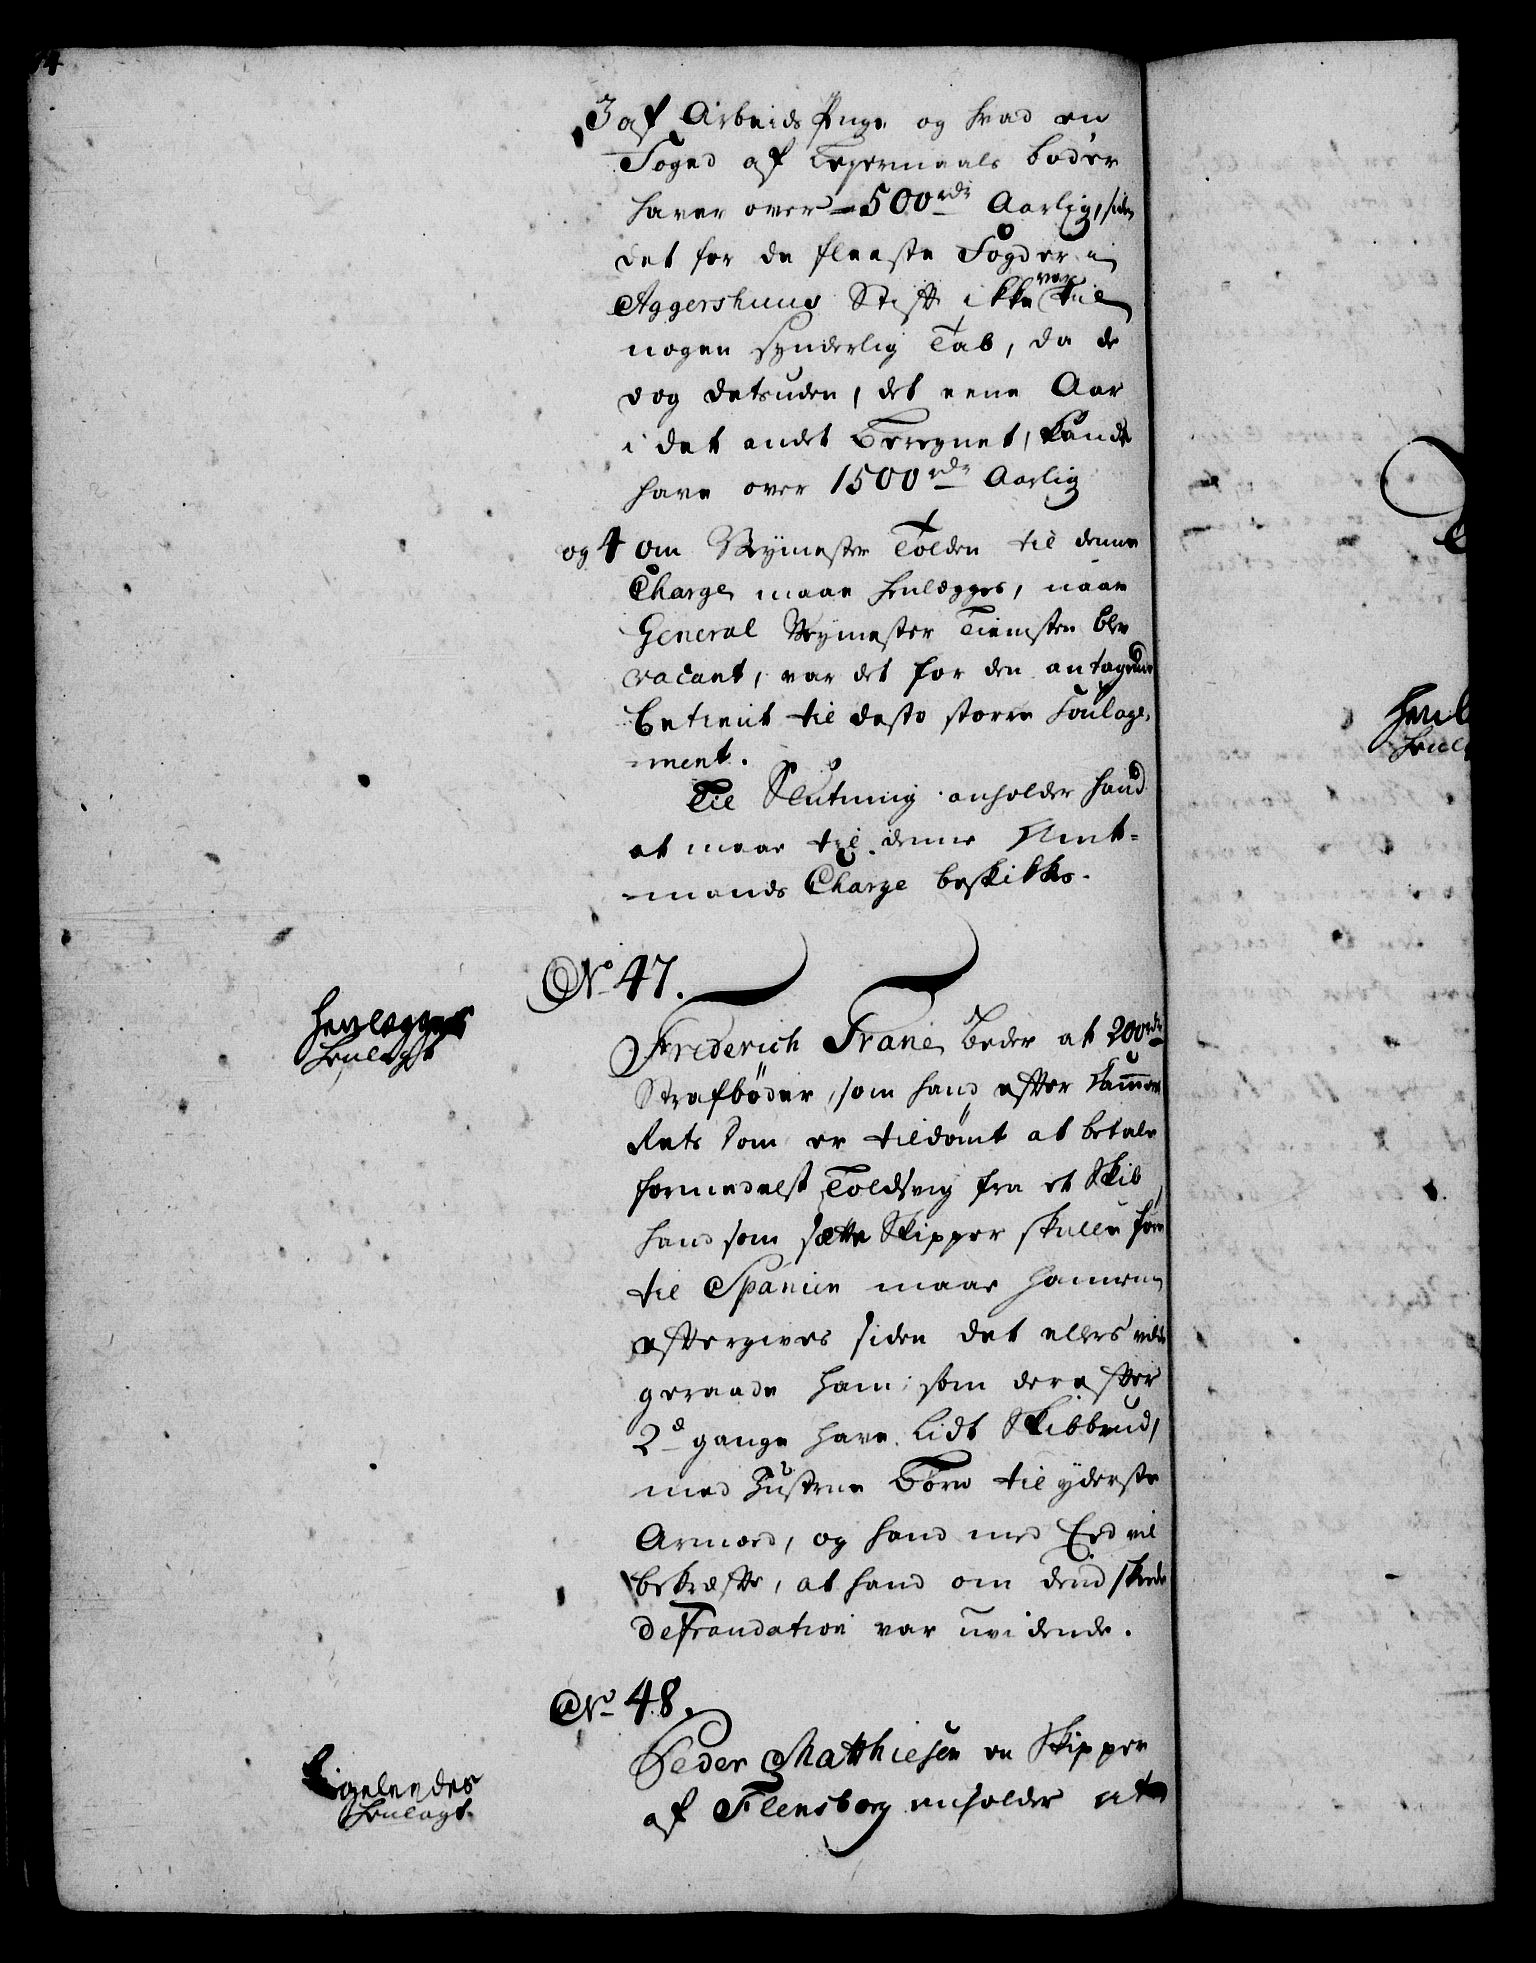 3 af Arbeids Penge og hvad en
Foged af Leyermaals bøder
haver over 500 rdr Aarlig, siden
det for de fleeste Fogder i
Aggershuus Stift ikke var til
nogen synderlig Tab, da de
dog desuden, det eene Aar
i det andet beregnet, kunde
have over 1500 rdr Aarlig
og 4 om Veymester Tolden til denne
Charge maae henlægges, naar
General Veymester Tienesten blev
vacant, var det for den antagende
Betient til desto større Soulage-
-ment.
Til Slutning anholder hand
at maae til denne Amt-
-mands Charge beskikkes.
No. 47.
henlegges
henlagt
Frederich Trane beder at 200 rdr
Strafbøder, som hand efter Cammer
Rets Dom er tildømt at betale
formedelst Toldsvig fra et Skib
hand som sætte Skipper skulle føre
til Spanien maae hannem
eftergives siden det ellers vilde
geraade ham, som derefter
2de gange have lidt Skibbrud,
med Hustrue Børn til yderste
Armod, og hand med Eed vil
bekræfte, at hand om dend skeede
deFraudation var uvidende.
No. 48.
Ligeleedes
henlagt.
Peder Matthiesen en Skipper
af Flensborg anholder at